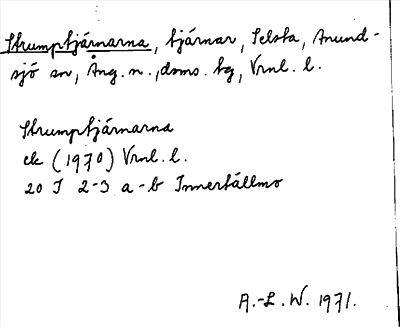 Strumptjärnarna, tjärnar, Selsta, Anund-
sjö sn, Ång. n., doms. tg, Vrnl. l.
Strumptjärnarna
ek (1970) Vrnl. l.
20 I 2-3 a-b Innertällmo
A.-L. W. 1971.